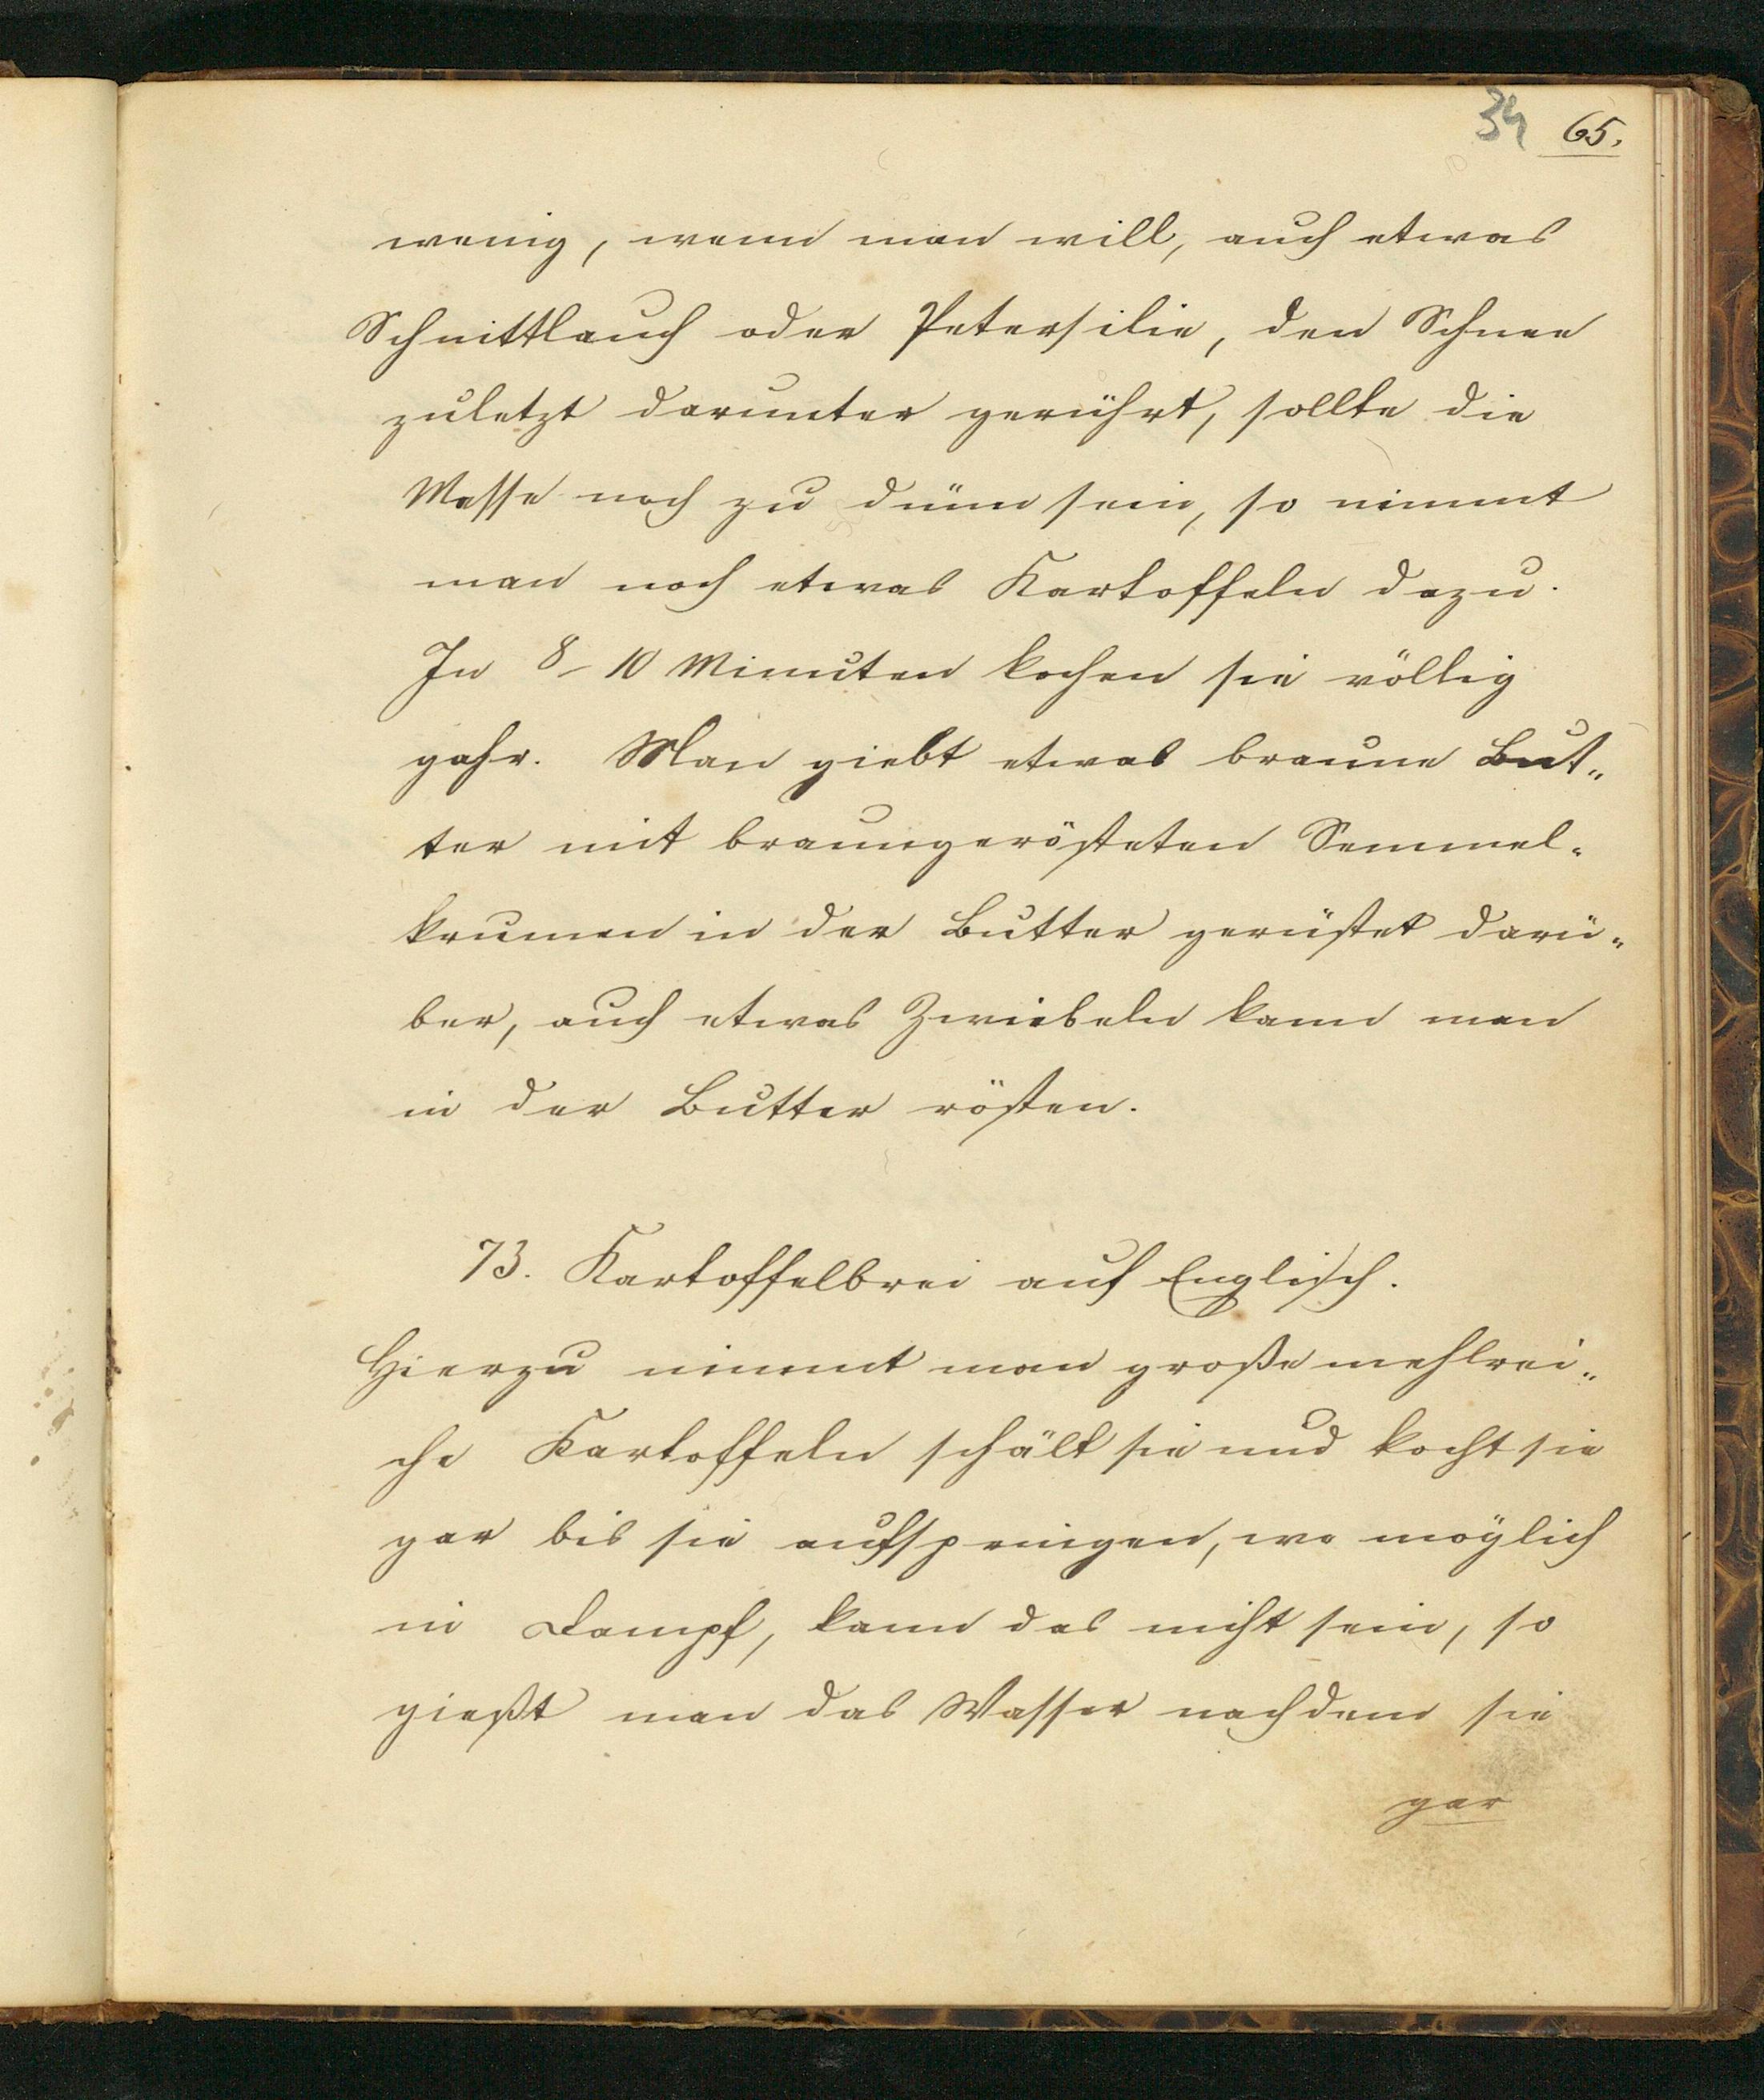 34 65.
wenig, wenn man will, auch etwas
Schnittlauch oder Petersilie, den Schnee
zuletzt darunter gerührt, sollte die
Masse noch zu dünn sein, so nimmt
man noch etwas Kartoffeln dazu.
In 8-10 Minuten kochen sie völlig
gahr. Man giebt etwas braune But„
ter mit braungerösteten Semmel„
krumen in der Butter gerüstet darü„
ber, auch etwas Zwiebeln kann man
in der Butter rösten.
73. Kartoffelbrei auf Englisch.
Hierzu nimmt man große mehlrei„
che Kartoffeln schält sie und kocht sie
gar bis sie aufspringen, wo möglich
in Dampf, kann das nicht sein, so
gießt man das Wasser nachdem sie
gar